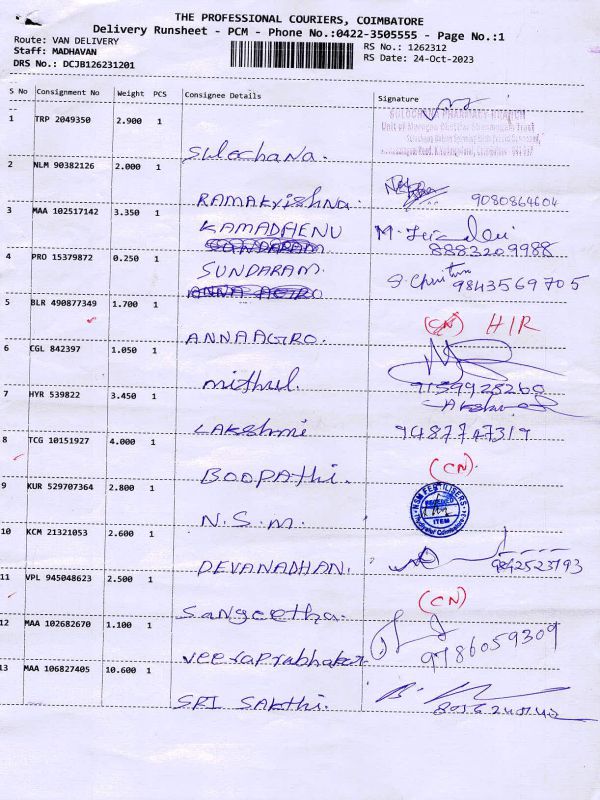 THE PROFESSIONAL COURIERS, COIMBATORE
Delivery Runsheet - PCM - Phone No.:0422-3505555 - Page No.:1
Route: VAN DELIVERY
Staff: MADHAVAN
DRS No.: DCJB126231201
RS No.: 1262312
RS Date: 24-Oct-2023
S No Consignment No Weight PCS Consignee Details Signature
1 TRP 2049350 2.900 1
SULOCHANA PHARMACY BRANCH
Sulochana.
2 NLM 90382126 2.000 1
RAMAKrishna. 9080864604
3 MAA 102517142 3.350 1
KAMADHENU
8883209988
4 PRO 15379872 0.250 1
SUNDARAM.
9843569705
5 BLR 490877349 1.700 1
ANNAAGRO. (CN) HIR
6 CGL 842397 1.050 1
mithul. 9159925260
7 HYR 539822 3.450 1
LAKshmi 9487747319
8 TCG 10151927 4.000 1
BOOPAthi. (CN).
9 KUR 529707364 2.800 1
N.S.M. NSM FERTILISERS RECEIVED ITEM
10 KCM 21321053 2.600 1
DEVANADHAN. 9842523793
11 VPL 945048623 2.500 1
Sangeetha. (CN)
12 MAA 102682670 1.100 1
Veeraprabhakar 9786059309
13 MAA 106827405 10.600 1
SRI SAKthi.